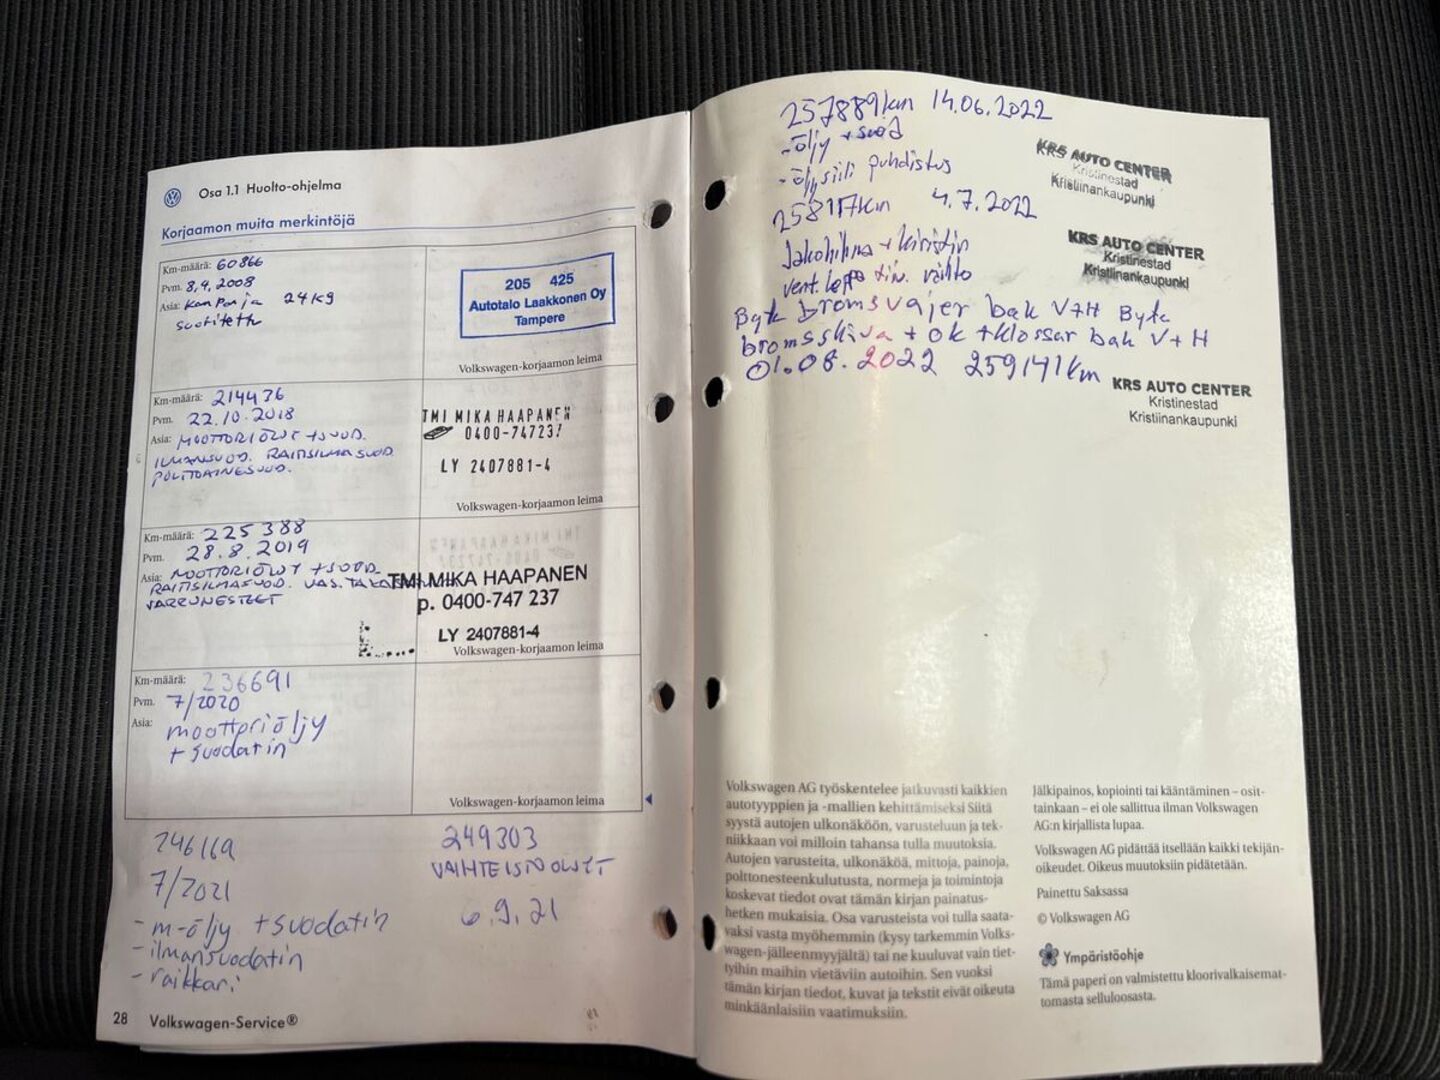 Osa 1.1 Huolto-ohjelma
Korjaamon muita merkintöjä
Km-määrä: 60866
Pvm. 8,4,2008
Asia: kampanja 24K9
suoritettu
205 425
Autotalo Laakkonen Oy
Tampere
Volkswagen-korjaamon leima
Km-määrä: 214436
Pvm. 22.10.2018
Asia: MOOTTORIÖLJYT + SUOD.
ILMANSUOD. RAITISILMASUOD
POLTTOAINESUOD.
TMI MIKA HAAPANEN
0400-747237
LY 2407881-4
Volkswagen-korjaamon leima
Km-määrä: 225388
Pvm. 28.8.2019
Asia: MOOTTORIÖLJYT + SUOD.
RAITISILMASUOD. VAS.
JARRUNESTEET
TMI MIKA HAAPANEN
p. 0400-747 237
LY 2407881-4
Volkswagen-korjaamon leima
Km-määrä: 236691
Pvm. 7/2020
Asia: moottoriöljy
+ suodatin
Volkswagen-korjaamon leima
246169
7/2021
- m-öljy + suodatin
- ilmansuodatin
- raikkari
249303
VAIHTEISTOÖLJYT
6.9.21
28 Volkswagen-Service®
257889km 14.06.2022
- öljy + suod
- öljysiili puhdistus
KRS AUTO CENTER
Kristinestad
Kristiinankaupunki
258117km 4.7.2022
Jakohihna + kiristin
vent. koppa tiiv. vaihto
KRS AUTO CENTER
Kristinestad
Kristiinankaupunki
Byte bromsvajer bak V+H Byte
bromsskiva + ok + klossar bak V + H
01.08.2022 259141km
KRS AUTO CENTER
Kristinestad
Kristiinankaupunki
Volkswagen AG työskentelee jatkuvasti kaikkien
autotyyppien ja -mallien kehittämiseksi Siitä
syystä autojen ulkonäköön, varusteluun ja tek-
niikkaan voi milloin tahansa tulla muutoksia.
Autojen varusteita, ulkonäköä, mittoja, painoja,
polttonesteenkulutusta, normeja ja toimintoja
koskevat tiedot ovat tämän kirjan painatus-
hetken mukaisia. Osa varusteista voi tulla saata-
vaksi vasta myöhemmin (kysy tarkemmin Volks-
wagen-jälleenmyyjältä) tai ne kuuluvat vain tiet-
tyihin maihin vietäviin autoihin. Sen vuoksi
tämän kirjan tiedot, kuvat ja tekstit eivät oikeuta
minkäänlaisiin vaatimuksiin.
Jälkipainos, kopiointi tai kääntäminen – osit-
tainkaan – ei ole sallittua ilman Volkswagen
AG:n kirjallista lupaa.
Volkswagen AG pidättää itsellään kaikki tekijän-
oikeudet. Oikeus muutoksiin pidätetään.
Painettu Saksassa
© Volkswagen AG
Ympäristöohje
Tämä paperi on valmistettu kloorivalkaisemat-
tomasta selluloosasta.